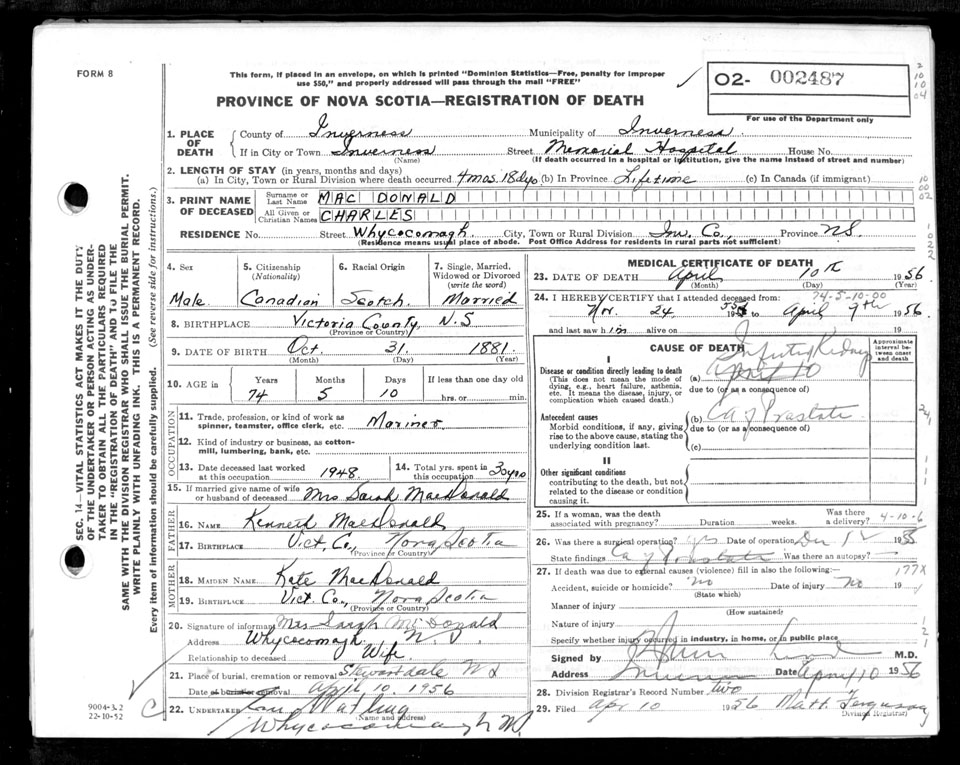 FORM 8
This form, if placed in an envelope, on which is printed "Dominion Statistics—Free, penalty for improper
use $50," and properly addressed will pass through the mail "FREE"
O2- 002487
For use of the Department only
2 10 10 04
PROVINCE OF NOVA SCOTIA—REGISTRATION OF DEATH
1. PLACE OF DEATH
County of Inverness Municipality of Inverness
If in City or Town Inverness Street Memorial Hospital House No.
(Name) (If death occurred in a hospital or institution, give the name instead of street and number)
2. LENGTH OF STAY (in years, months and days)
(a) In City, Town or Rural Division where death occurred 4 mos. 18 dys (b) In Province Lifetime (c) In Canada (if immigrant)
3. PRINT NAME OF DECEASED
Surname or Last Name MAC DONALD
All Given or Christian Names CHARLES
RESIDENCE No. Street Whycocomagh City, Town or Rural Division Inv. Co., Province N.S.
(Residence means usual place of abode. Post Office Address for residents in rural parts not sufficient)
4. Sex
Male
5. Citizenship (Nationality)
Canadian
6. Racial Origin
Scotch
7. Single, Married, Widowed or Divorced (write the word)
Married
8. BIRTHPLACE Victoria County, N.S
(Province or Country)
9. DATE OF BIRTH Oct. 31. 1881.
(Month) (Day) (Year)
10. AGE in
Years Months Days If less than one day old
74 5 10 hrs. or min.
OCCUPATION
11. Trade, profession, or kind of work as spinner, teamster, office clerk, etc. Mariner
12. Kind of industry or business, as cotton-mill, lumbering, bank, etc.
13. Date deceased last worked at this occupation 1948.
14. Total yrs. spent in this occupation 30 yrs
15. If married give name of wife or husband of deceased Mrs Sarah MacDonald
FATHER
16. NAME Kenneth MacDonald
17. BIRTHPLACE Vict. Co., Nova Scotia
(Province or Country)
MOTHER
18. MAIDEN NAME Kate MacDonald
19. BIRTHPLACE Vict. Co., Nova Scotia
(Province or Country)
20. Signature of informant Mrs Sarah McDonald
Address Whycocomagh
Relationship to deceased Wife
21. Place of burial, cremation or removal Stewartdale
Date of burial or removal April 10, 1956
22. UNDERTAKER Watling
(Name and address)
Whycocomagh
MEDICAL CERTIFICATE OF DEATH
23. DATE OF DEATH April 10th 1956
(Month) (Day) (Year)
24. I HEREBY CERTIFY that I attended deceased from:
74-5-10-00
Nov. 24 to April 9th 1956.
and last saw him alive on 19
CAUSE OF DEATH
Approximate interval between onset and death
I
Disease or condition directly leading to death
(This does not mean the mode of dying, e.g., heart failure, asthenia, etc. It means the disease, injury, or complication which caused death.)
(a) Kidney
April 10
due to (or as a consequence of)
Antecedent causes
Morbid conditions, if any, giving rise to the above cause, stating the underlying condition last.
(b) Ca of Prostate
due to (or as a consequence of)
(c)
II
Other significant conditions
contributing to the death, but not related to the disease or condition causing it.
25. If a woman, was the death associated with pregnancy? Duration weeks. Was there a delivery?
4-10-6
26. Was there a surgical operation? yes Date of operation 1955
State findings Ca of Prostate Was there an autopsy?
27. If death was due to external causes (violence) fill in also the following:—
177X
Accident, suicide or homicide? No Date of injury No 19
(State which)
Manner of injury
(How sustained)
Nature of injury
Specify whether injury occurred in industry, in home, or in public place
Signed by M.D.
Address Date April 10 1956
28. Division Registrar's Record Number two
29. Filed Apr 10 1956 Matt. Ferguson
Division Registrar)
SEC. 14—VITAL STATISTICS ACT MAKES IT THE DUTY
OF THE UNDERTAKER OR PERSON ACTING AS UNDER-
TAKER TO OBTAIN ALL THE PARTICULARS REQUIRED
IN THE "REGISTRATION OF DEATH" AND TO FILE THE
SAME WITH THE DIVISION REGISTRAR WHO SHALL ISSUE THE BURIAL PERMIT.
WRITE PLAINLY WITH UNFADING INK. THIS IS A PERMANENT RECORD.
Every item of information should be carefully supplied. (See reverse side for instructions.)
9004-3.2
22-10-52